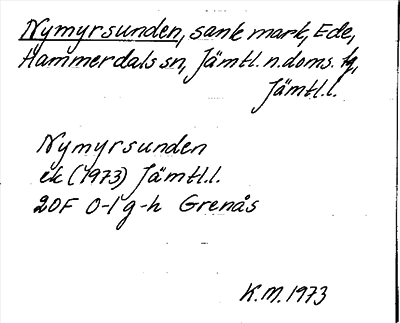 Nymyrsunden, sank mark, Ede,
Hammerdals sn, Jämtl. n. doms. tg,
Jämtl.l.
Nymyrsunden
ek (1973) Jämtl.l.
20F 0-1 g-h Grenås
K.M. 1973